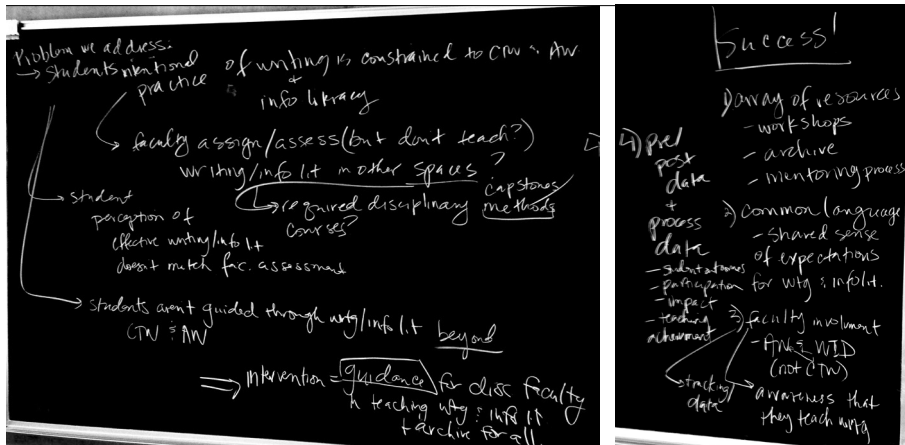 Problem we address:
→ Students intentional practice of writing is constrained to CTW & AW
+
info literacy
→ faculty assign/assess (but don't teach?)
writing/info lit in other spaces?
→ required disciplinary courses?
capstones
methods
→ student
perception of
effective writing/info lit
doesn't match fac. assessment
→ students aren't guided through wrtg/info lit beyond
CTW & AW
⇒ intervention = guidance for disc faculty
in teaching wtg & info lit
+ archive for all.
Success!
1) array of resources
- workshops
- archive
- mentoring process
2) common language
- shared sense
of expectations
for wtg & info lit.
3) faculty involvment
- AW & WID
(not CTW)
→ awareness that
they teach wrtg
→ tracking
data
4) pre/
post
data
+
process
data
- student outcomes
- participation
- impact
- teaching
achievement